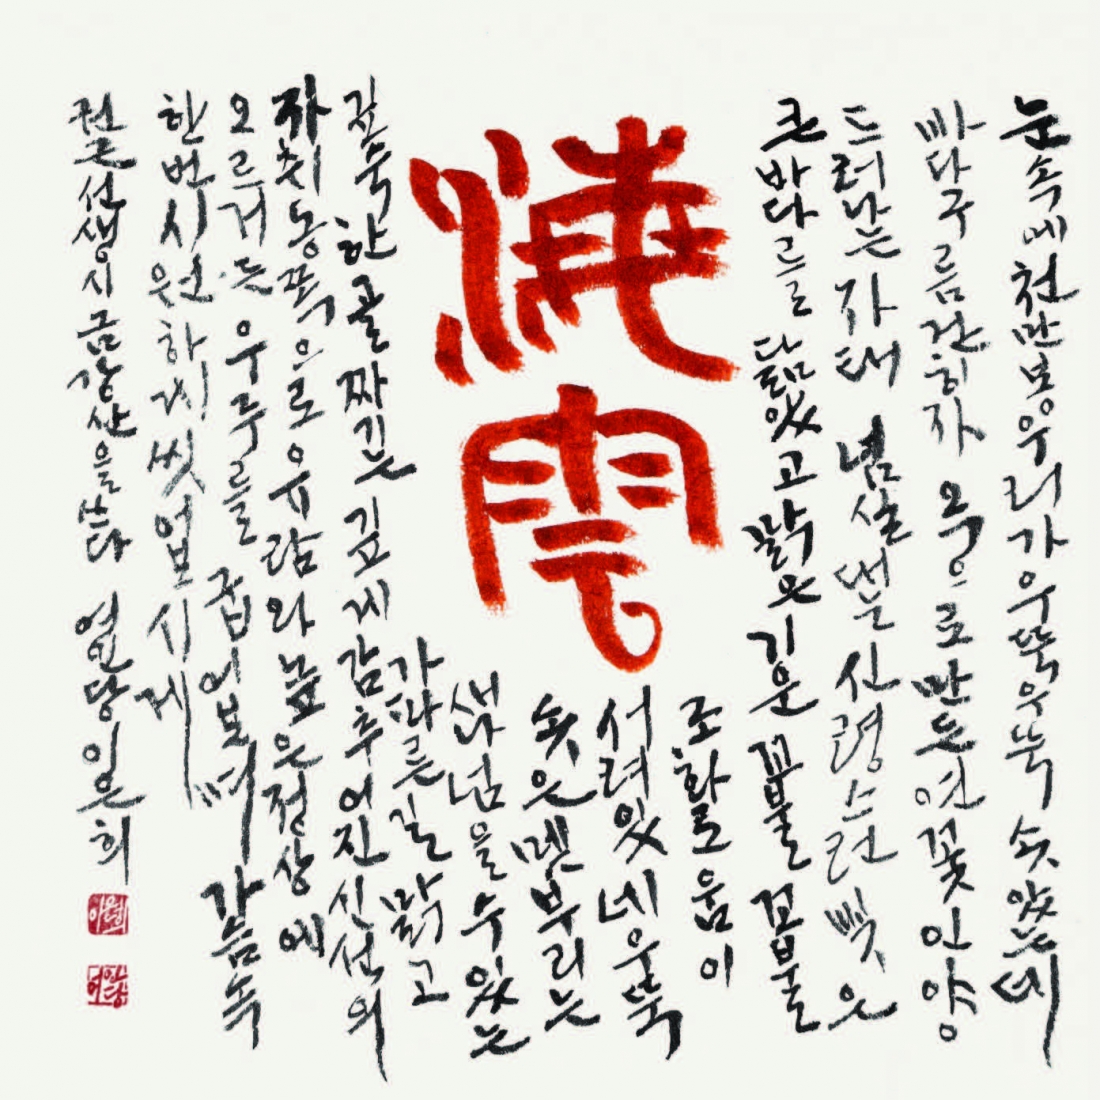 눈속에천만봉우리가우뚝우뚝솟았는데
바다구름걷히자 옥으로만든연꽃인양
드러나는자태 넘실 신령스런빛은
큰바다를닮았고맑은기운 꾸불꼬불
조화로움이
海雲
서려있네우뚝
솟은멧부리는
새넘을수있는
가파른길 맑고
깊숙한골짜기는깊게감추어진신선의
자취동쪽으로유람와높은정상에
오르거든우주를 굽어보며 가슴속
한번시원하게씻어보시게
권근선생시금강산을쓰다 연당이은희